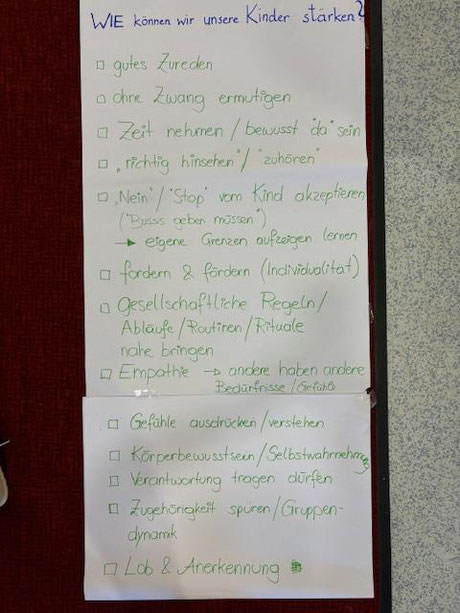 WIE können wir unsere Kinder stärken?
□ gutes Zureden
□ ohne Zwang ermutigen
□ Zeit nehmen / bewusst "da" sein
□ „richtig hinsehen" / "zuhören"
□ „Nein"/"Stop" vom Kind akzeptieren
("Bussis geben müssen")
→ eigene Grenzen aufzeigen lernen
□ fordern & fördern (Individualität)
□ gesellschaftliche Regeln/
Abläufe/Routinen/Rituale
nahe bringen
□ Empathie → andere haben andere
Bedürfnisse/Gefühle
□ Gefühle ausdrücken/verstehen
□ Körperbewusstsein/Selbstwahrnehmung
□ Verantwortung tragen dürfen
□ Zugehörigkeit spüren/Gruppen-
dynamik
□ Lob & Anerkennung